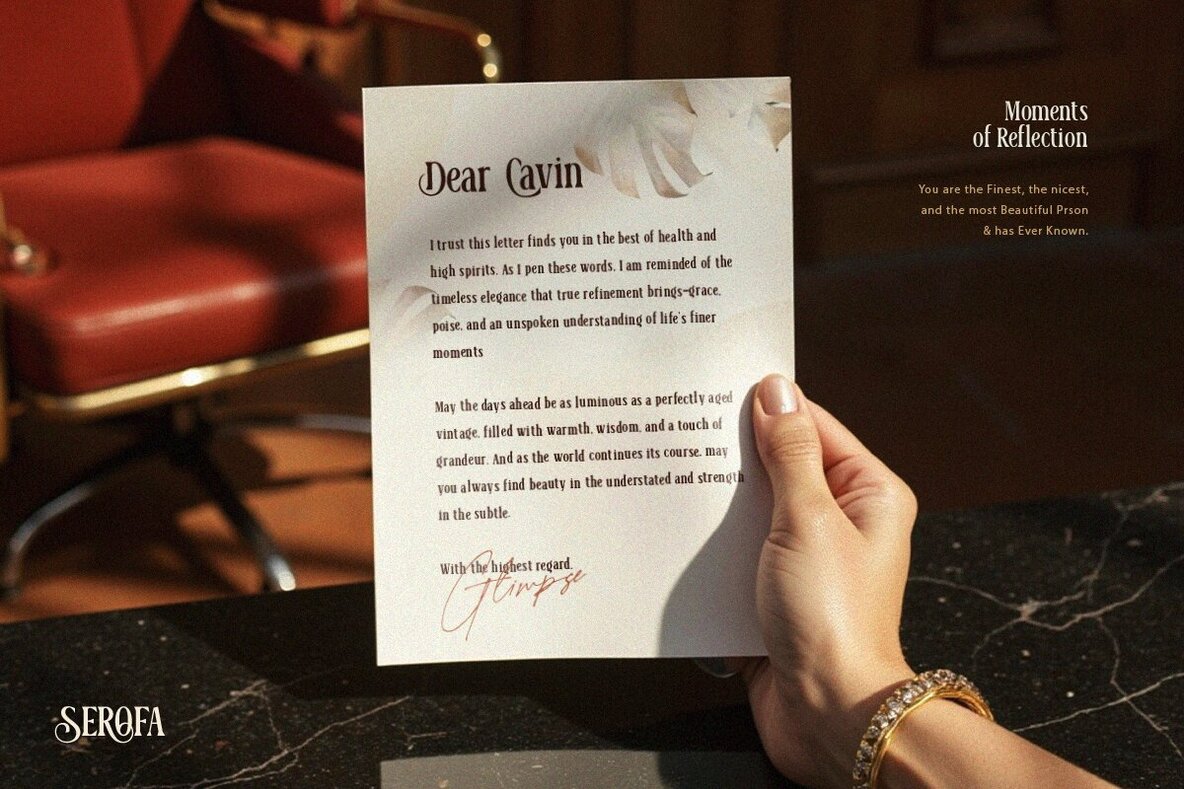 Moments
of Reflection
You are the Finest, the nicest,
and the most Beautiful Prson
& has Ever Known.
Dear Cavin
I trust this letter finds you in the best of health and
high spirits. As I pen these words, I am reminded of the
timeless elegance that true refinement brings-grace,
poise, and an unspoken understanding of life's finer
moments
May the days ahead be as luminous as a perfectly aged
vintage, filled with warmth, wisdom, and a touch of
grandeur. And as the world continues its course, may
you always find beauty in the understated and strength
in the subtle.
With the highest regard,
Glimpse
SEROFA